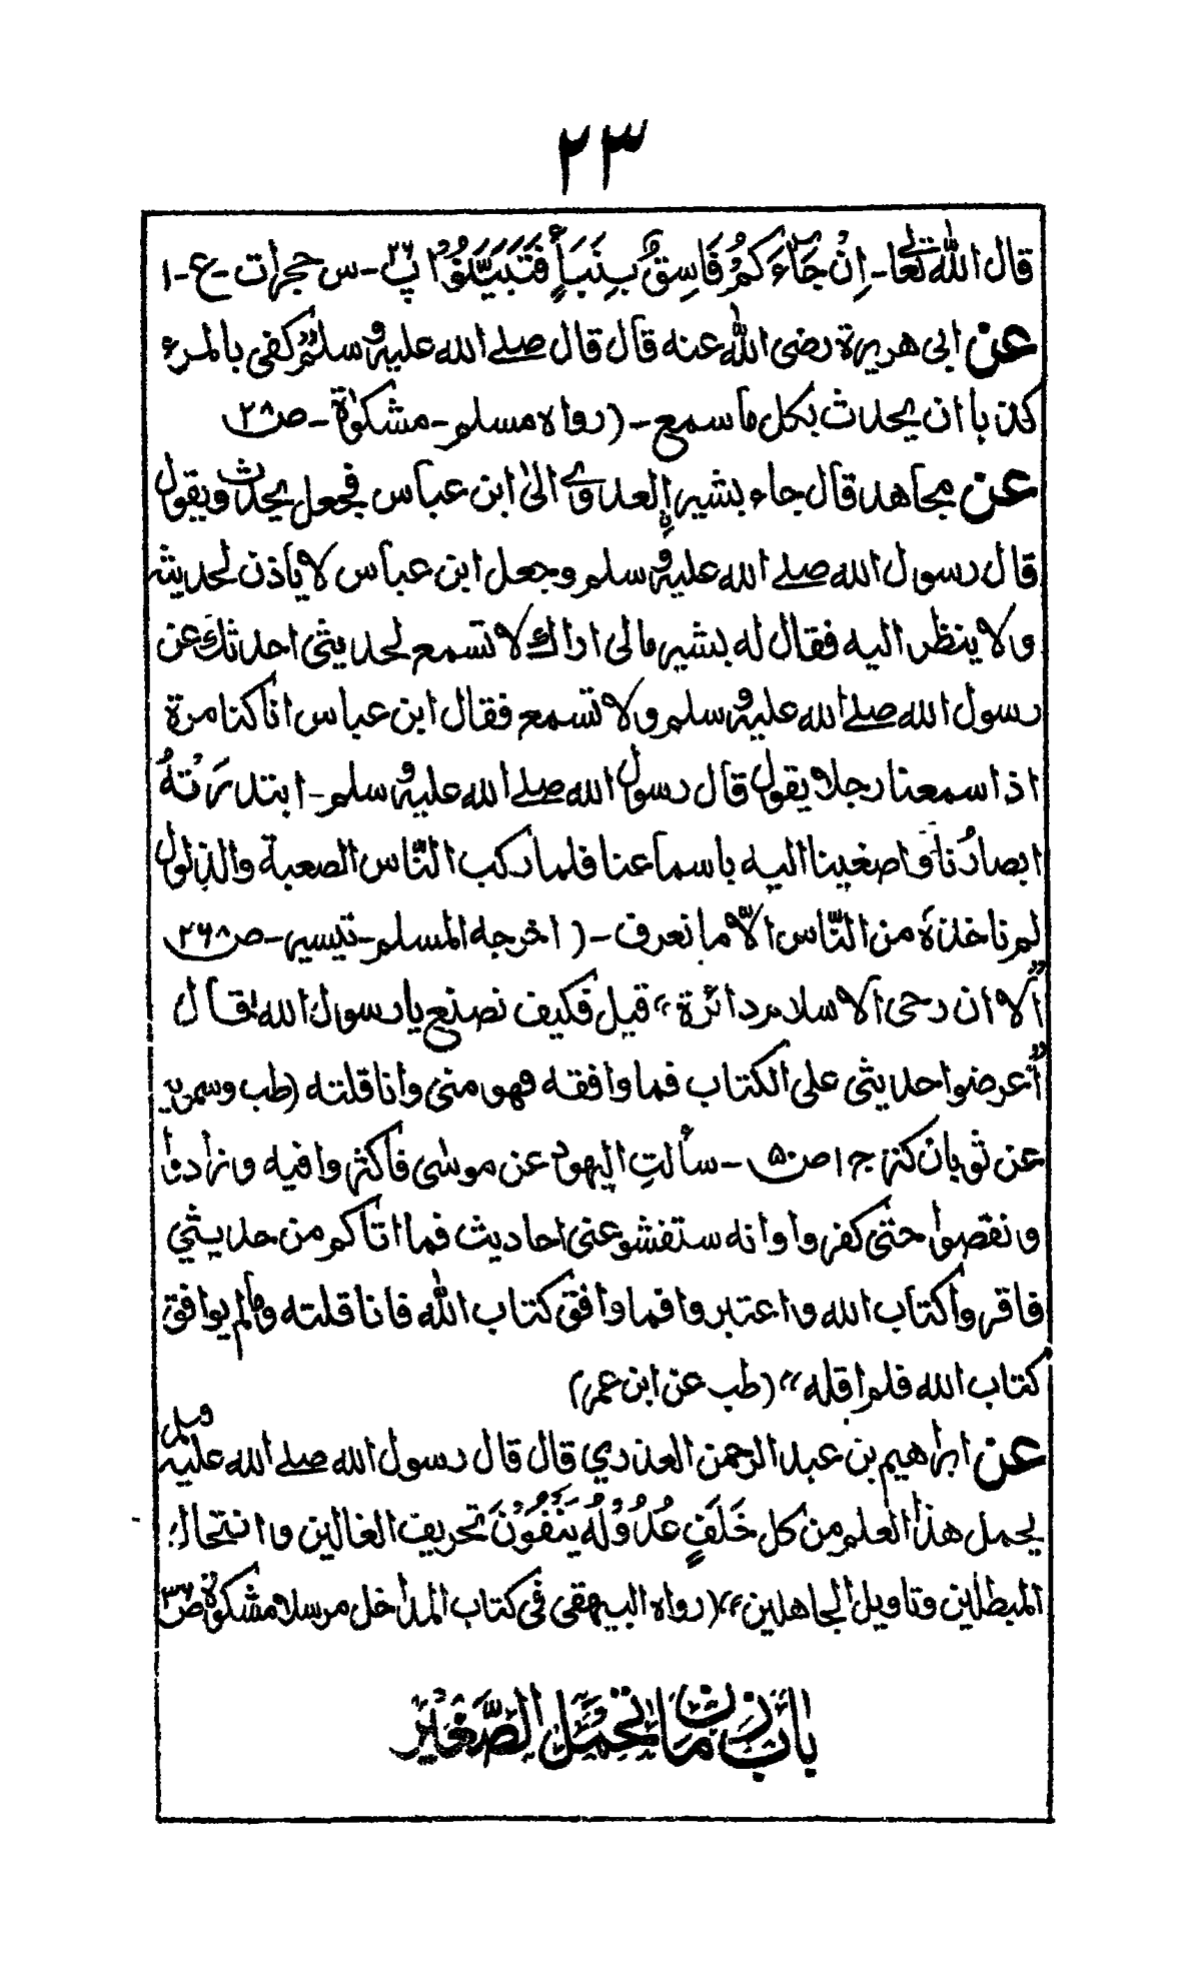 ۲۳
قال الله تعالى - اِنْ جَآءَكُمْ فَاسِقٌ بِنَبَأٍ فَتَبَيَّنُوْا پ۲۶ - س حجرات - ع - ۱
عن ابی هریرة رضی الله عنه قال قال صلے الله علیه وسلم کفی بالمرء
کذبا ان یحدث بکل ما سمع - (رواه مسلم - مشکوٰة - ص۲۸
عن مجاهد قال جاء بشیر العدوی الیٰ ابن عباس فجعل یحدث ویقول
قال رسول الله صلے الله علیه وسلم وجعل ابن عباس لا یاذن لحدیثه
ولا ینظر الیه فقال له بشیر مالی اراك لا تسمع لحدیثی احدثك عن
رسول الله صلے الله علیه وسلم ولا تسمع فقال ابن عباس انا کنا مرة
اذا سمعنا رجلا یقول قال رسول الله صلے الله علیه وسلم - ابتدرَتْهُ
ابصارُنا واصغینا الیه باسماعنا فلما رکب النّاس الصعبة والذلول
لم ناخذه من النّاس الّا ما نعرف - (اخرجه المسلم - تیسیر - ص۲۶۸
"اَلا ان رحی الاسلام دائرة" قیل فکیف نصنع یا رسول الله! قال
"اُعرضوا حدیثی علی الکتاب فما وافقه فهو منی وانا قلته (طب وسمویه
عن ثوبان کنز ج۱ ص۵۰ - سألتِ الیهود عن موسٰی فاکثروا فیه وزادوا
ونقصوا حتی کفروا وانه ستفشو عنی احادیث فما اتاکم من حدیثی
فاقروا کتاب الله واعتبروا فما وافق کتاب الله فانا قلته ومالم یوافق
کتاب الله فلم اقله" (طب عن ابن عمر)
عن ابراهیم بن عبد الرحمن العذری قال قال رسول الله صلے الله علیه وسلم
یحمل هذا العلم من کل خَلَفٍ عُدُوْلُه یَنْفُوْنَ تحریف الغالین وانتحال
المبطلین وتاویل الجاهلین" (رواه البیهقی فی کتاب المدخل مرسلا مشکوٰة ص۳۶
باب زمان تحمل الصّغیر